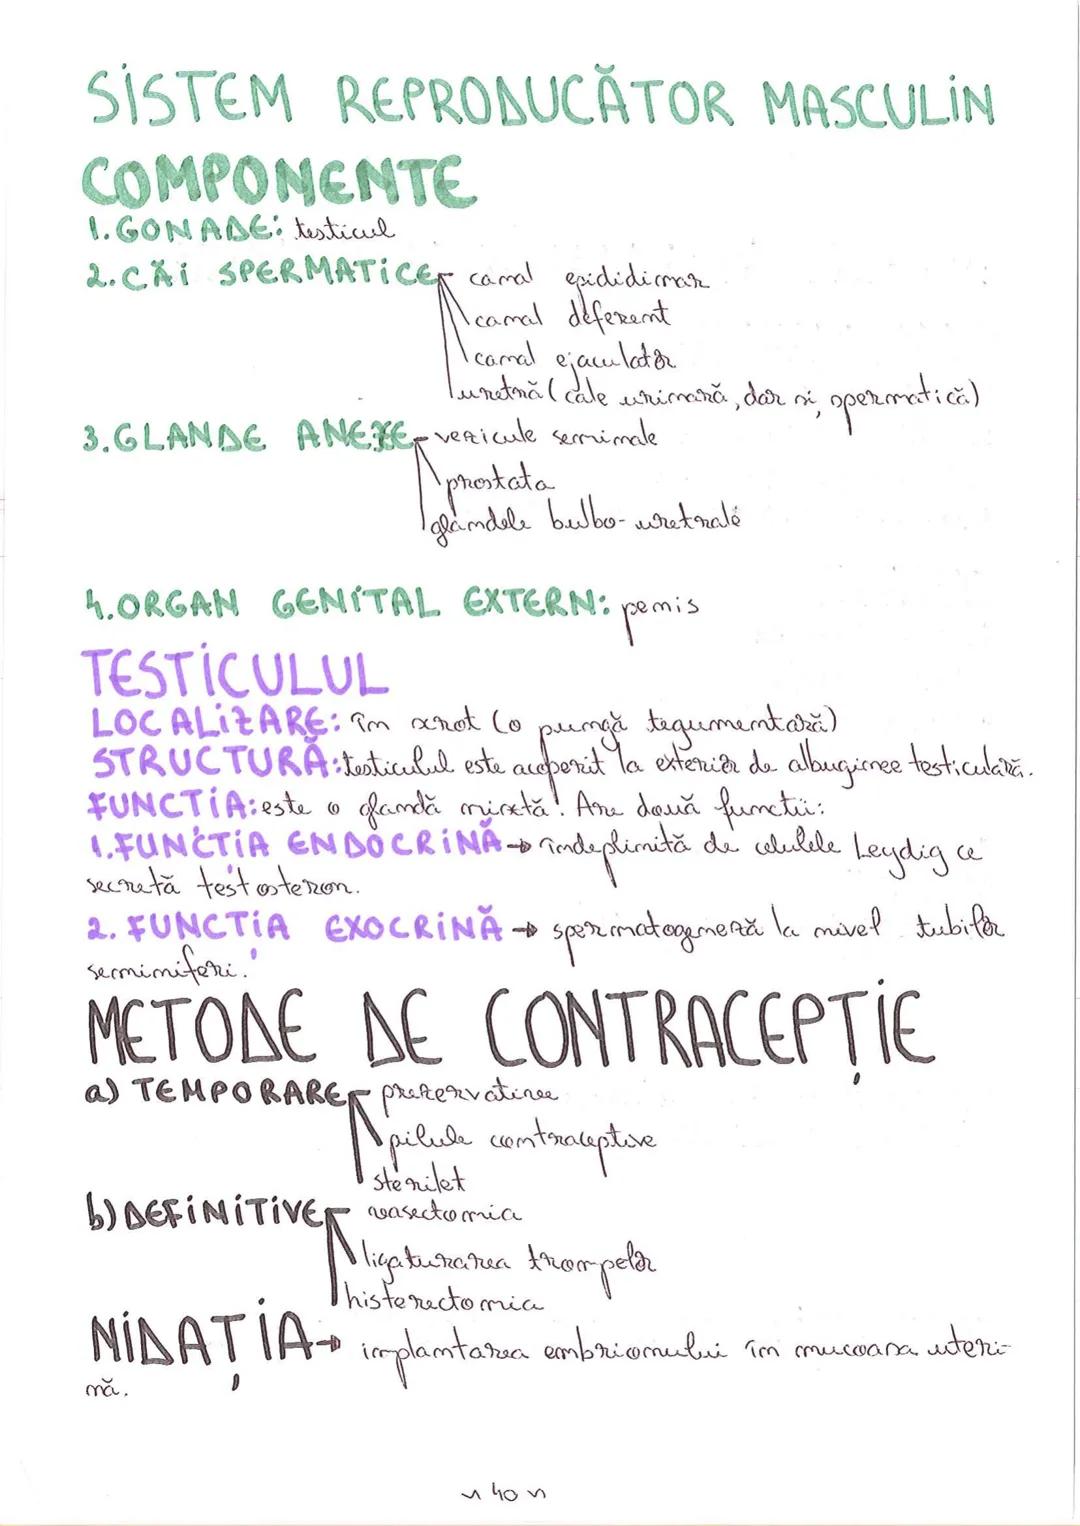 SISTEM REPRODUCĂTOR MASCULIN
COMPONENTE
1. GONADE: testicul
2. CĂI SPERMATICE canal epididimar
canal deferent
canal ejaculator
uretră (cale urinară, dar și spermatică)
3. GLANDE ANEXE vezicule seminale
prostata
glandele bulbo-uretrale
4. ORGAN GENITAL EXTERN: penis
TESTICULUL
LOCALIZARE: în scrot (o pungă tegumentară)
STRUCTURĂ: testiculul este acoperit la exterior de albuginee testiculară.
FUNCȚIA: este o glandă mixtă! Are două funcții:
1. FUNCȚIA ENDOCRINĂ → îndeplinită de celulele Leydig ce
secretă testosteron.
2. FUNCȚIA EXOCRINĂ → spermatogeneză la nivel tubilor
seminiferi.
METODE DE CONTRACEPȚIE
a) TEMPORARE prezervativee
pilule contraceptive
sterilet
b) DEFINITIVE vasectomia
ligaturarea trompelor
histerectomia
NIDAȚIA → implantarea embrionului în mucoasa uteri-
nă.
~ 40 ~